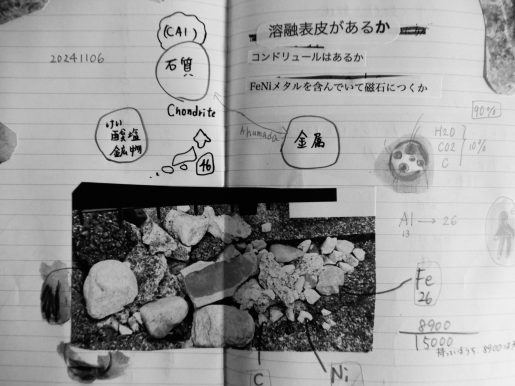 20241106
(CAI)
石質
Chondrite
けい
酸塩
鉱物
46
溶融表皮があるか
コンドリュールはあるか
FeNiメタルを含んでいて磁石につくか
Ahumada
金属
90%
H2O
CO2
C
10%
Al → 26
13
Fe
26
8900
15000
C
Ni